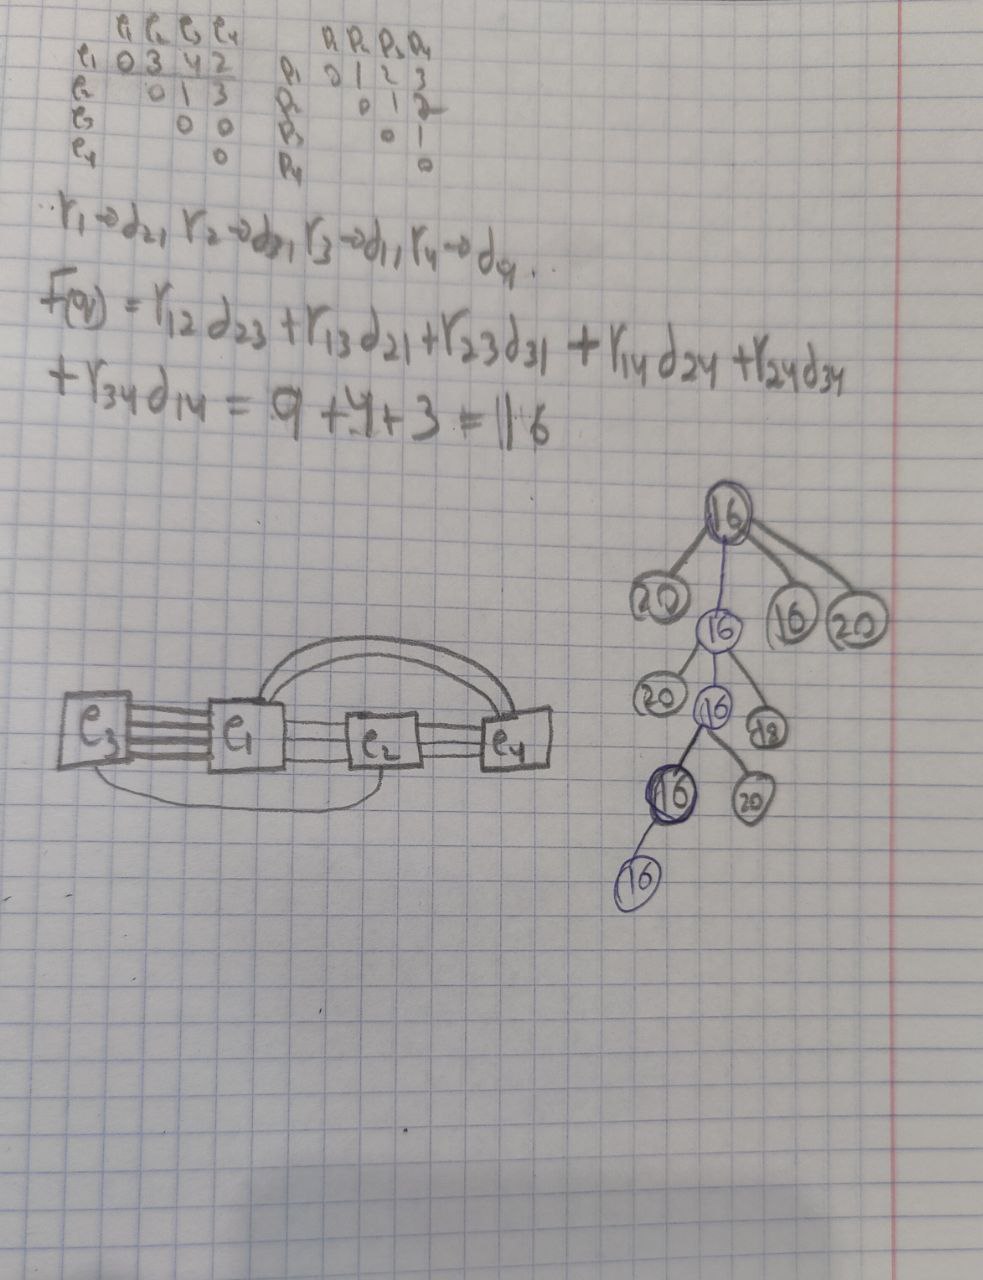 e₁ e₂ e₃ e₄
e₁ 0 3 4 2
e₂ 0 1 3
e₃ 0 0
e₄ 0
p₁ p₂ p₃ p₄
p₁ 0 1 2 3
p₂ 0 1 2
p₃ 0 1
p₄ 0
r₁→d₂, r₂→d₃, r₃→d₁, r₄→d₄.
F(q) = r₁₂d₂₃ + r₁₃d₂₁ + r₂₃d₃₁ + r₁₄d₂₄ + r₂₄d₃₄
+ r₃₄d₁₄ = 9 + 4 + 3 = 16
16
20 16 16 20
20 16 18
e₃ e₁ e₂ e₄
16 20
16